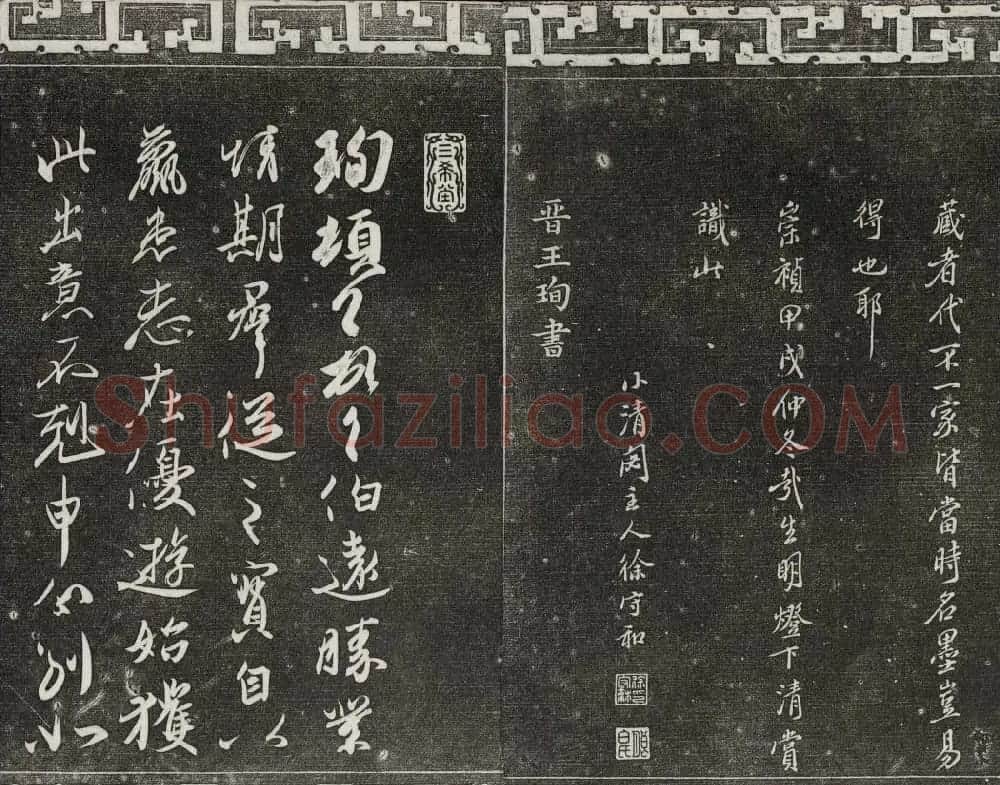 藏者代不一家皆當時名墨豈易
得也耶
崇禎甲戌仲冬哉生明燈下清賞
識此
小清閟主人徐守和
晋王珣書
三希堂
珣頓首頓首伯遠勝業
情期羣從之寶自以
羸患志在優遊始獲
此出意不剋申分別如
Shufaziliao.COM